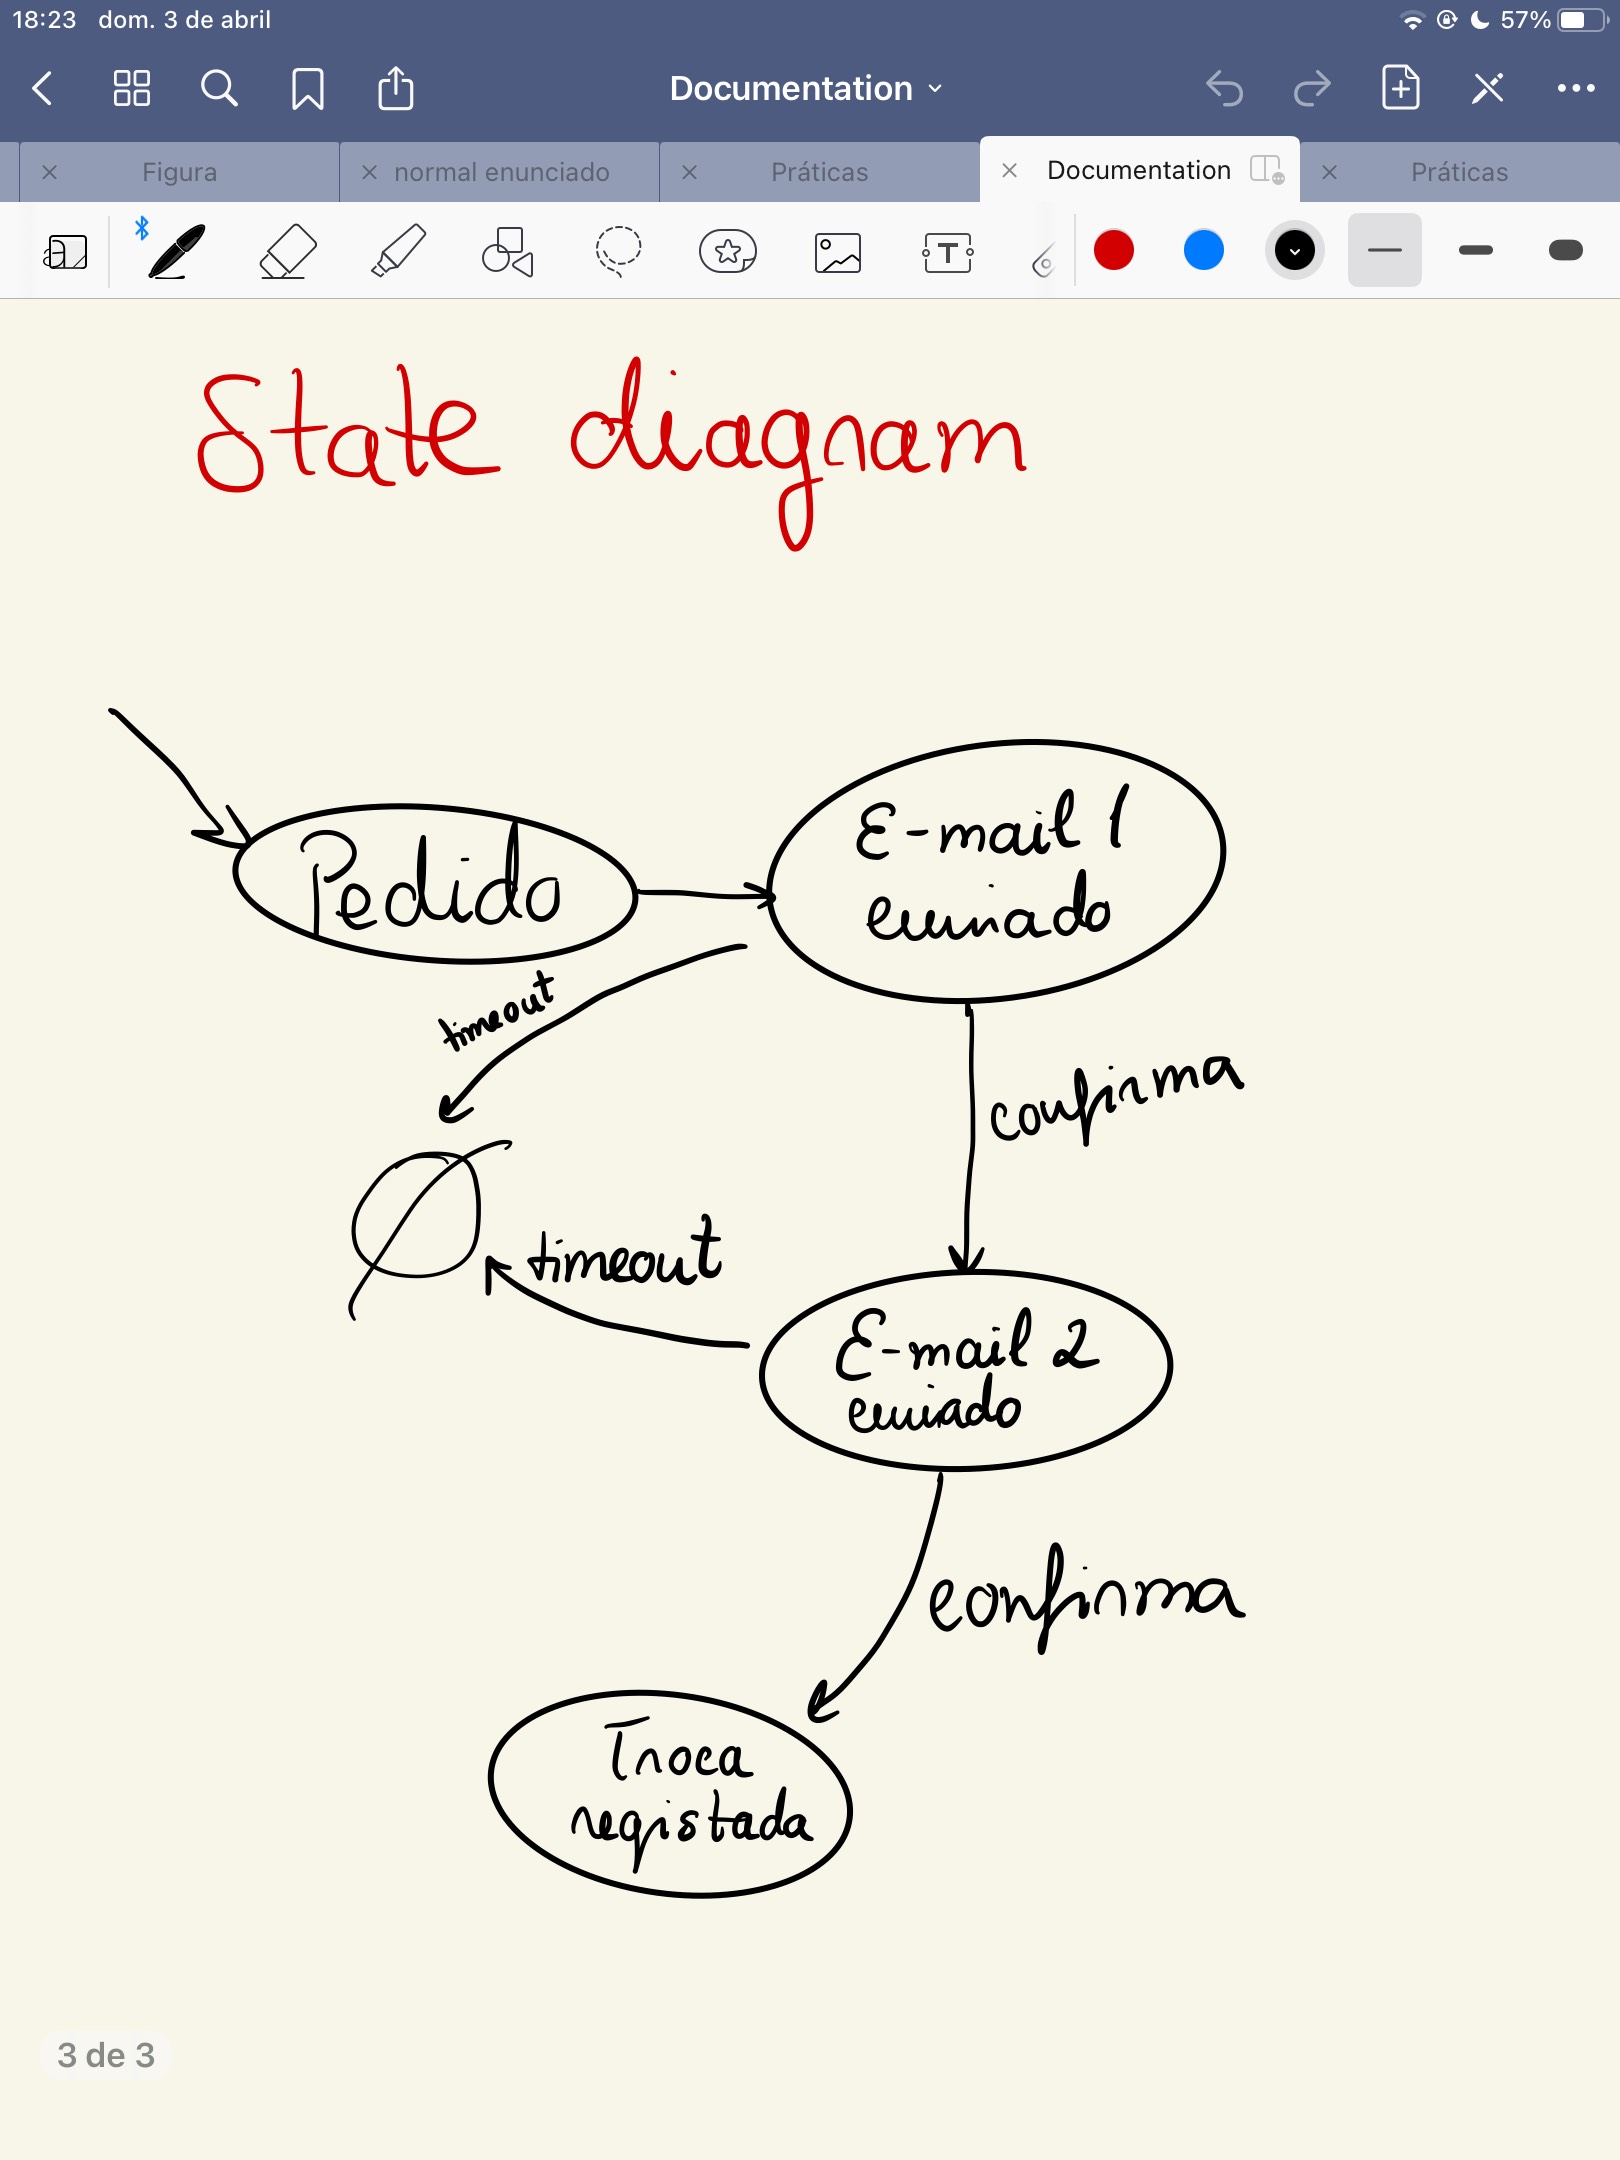 18:23 dom. 3 de abril 57%
Documentation
Figura normal enunciado Práticas Documentation Práticas
State diagram
Pedido
E-mail 1
enviado
timeout
confirma
timeout
E-mail 2
enviado
confirma
Troca
registada
3 de 3